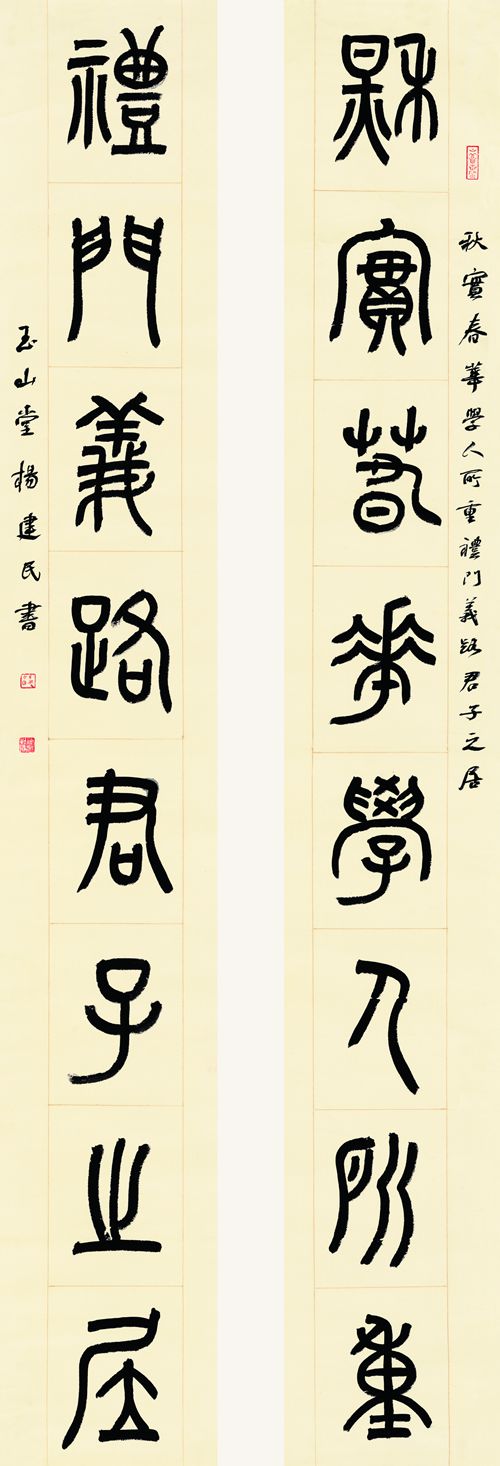 秋實春華學人所重
秋實春華學人所重禮門義路君子之居
禮門義路君子之居
玉山堂楊建民書